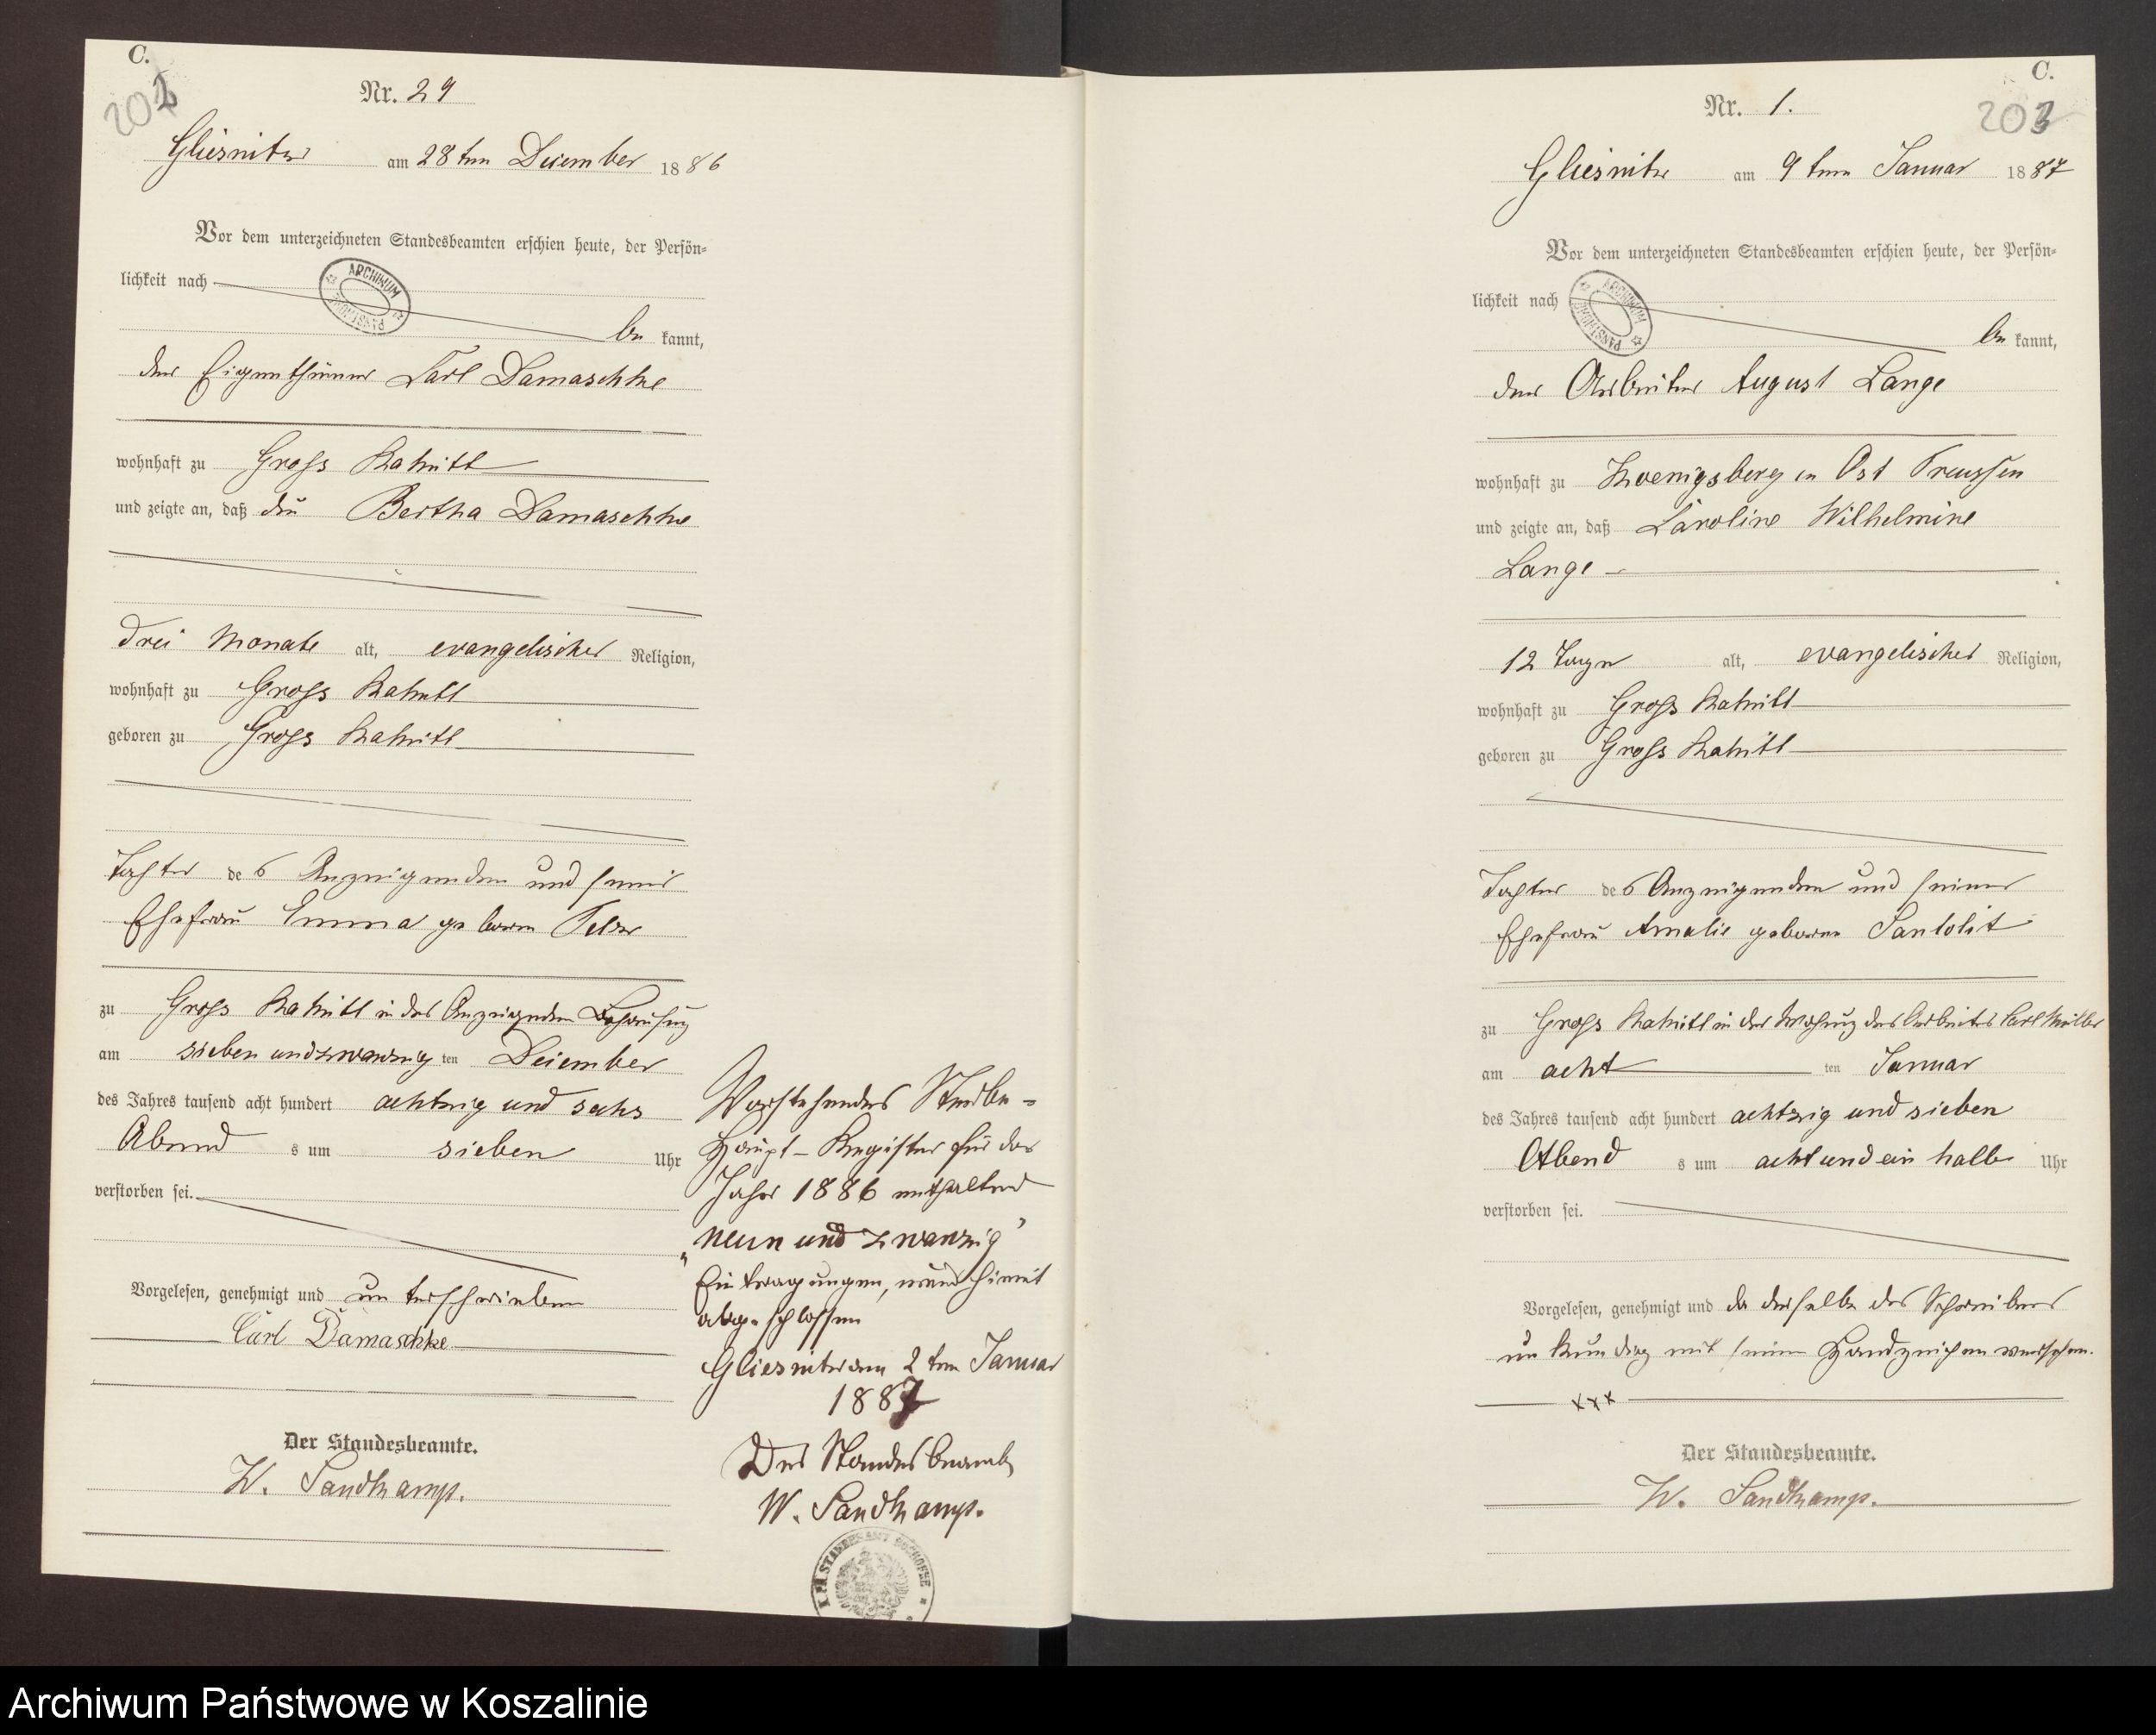 C.
202
Nr. 29
Gliesnitz am 28ten Dezember 1886
Vor dem unterzeichneten Standesbeamten erschien heute, der Persön-
lichkeit nach
ARCHIWUM PAŃSTWOWE
be kannt,
der Eigenthümer Carl Damaschke
wohnhaft zu Gross Rakitt
und zeigte an, daß die Bertha Damaschke
drei Monate alt, evangelischer Religion,
wohnhaft zu Gross Rakitt
geboren zu Gross Rakitt
Tochter des Anzeigenden und seiner
Ehefrau Emma geborne
zu Gross Rakitt in des Anzeigenden Behausung
am sieben und zwanzig ten Dezember
des Jahres tausend acht hundert achtzig und sechs
Abend s um sieben Uhr
verstorben sei.
Vorgelesen, genehmigt und unterschrieben
Carl Damaschke
Der Standesbeamte.
W. Sandkamp.
Vorstehendes Sterbe-
Haupt-Register für das
Jahr 1886 enthaltend
"neun und zwanzig"
Eintragungen, wird hiermit
abgeschlossen
Gliesnitz am 2ten Januar
1887
Der Standesbeamte
W. Sandkamp.
C.
203
Nr. 1.
Gliesnitz am 9ten Januar 1887
Vor dem unterzeichneten Standesbeamten erschien heute, der Persön-
lichkeit nach
ARCHIWUM PAŃSTWOWE
be kannt,
der Arbeiter August Lange
wohnhaft zu Koenigsberg in Ost Preussen
und zeigte an, daß Caroline Wilhelmine
Lange
12 Tage alt, evangelischer Religion,
wohnhaft zu Gross Rakitt
geboren zu Gross Rakitt
Tochter des Anzeigenden und seiner
Ehefrau Amalie geborne
zu Gross Rakitt in der Wohnung des Arbeiters Carl Müller
am acht ten Januar
des Jahres tausend acht hundert achtzig und sieben
Abend s um acht und ein halb Uhr
verstorben sei.
Vorgelesen, genehmigt und da derselbe des Schreibens
unkundig mit seinem Handzeichen versehen.
xxx
Der Standesbeamte.
W. Sandkamp.
Archiwum Państwowe w Koszalinie